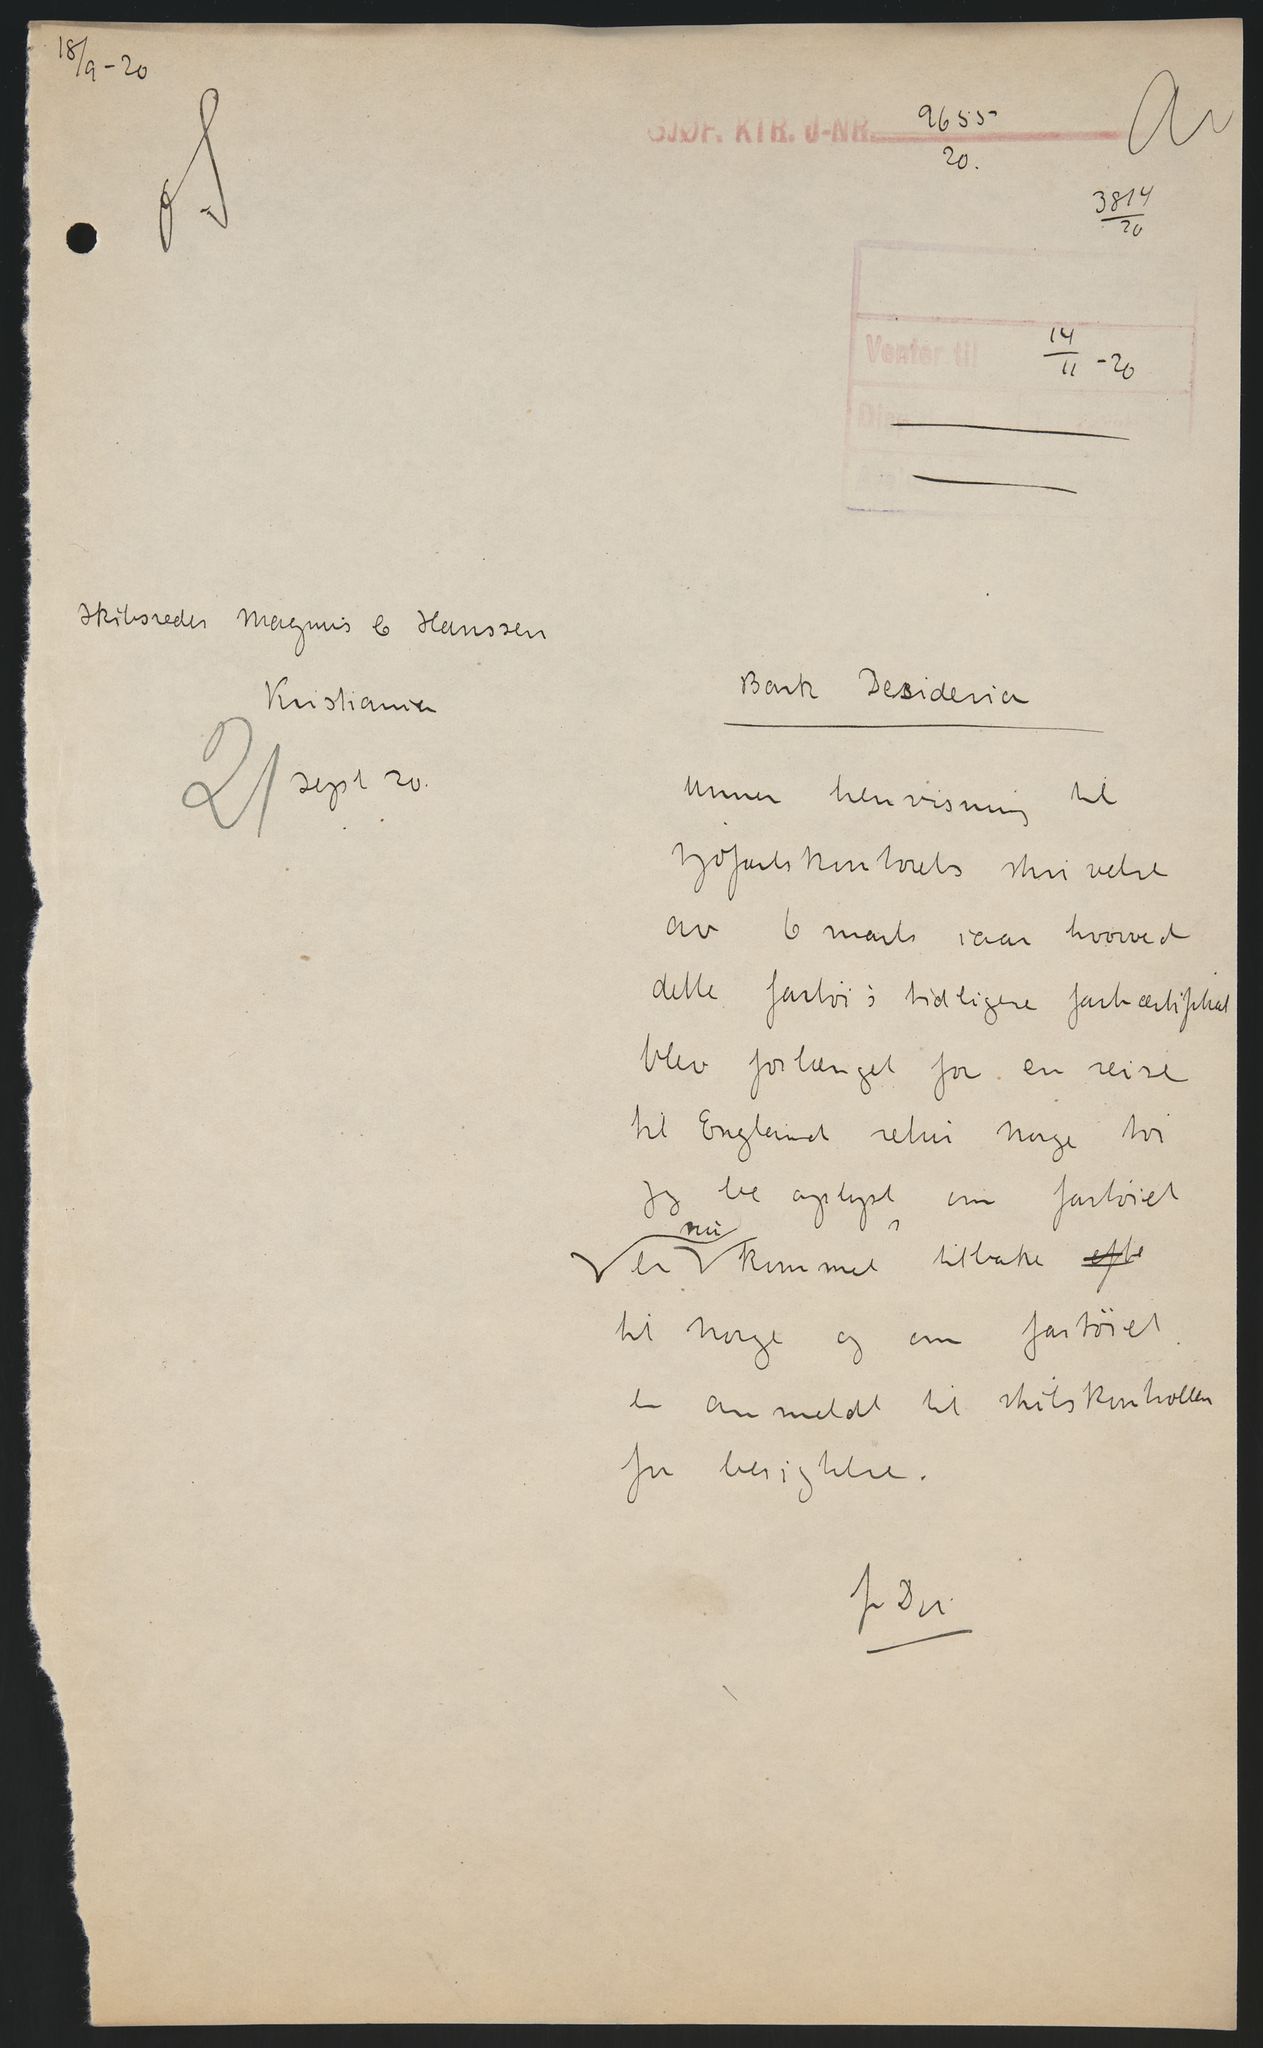 18/9-20
SJØF. KTR. J-NR. 9655
20.
3814
20
Venter til 14/11 -20
Skibsreder Magnus C Hanssen
Kristiania
21 sept 20.
Bark Desideria
Unner henvisning til
sjøfartskontorets skrivelse
av 6 marts iaar hvorved
dette fartøi's tidligere fartscertifikat
blev forlænget for en reise
til England retur Norge tør
jeg be oplyst om fartøiet
nu
er kommet tilbake
til Norge og om fartøiet
er anmeldt til skibskontrollen
for besigtelse.
f Dir